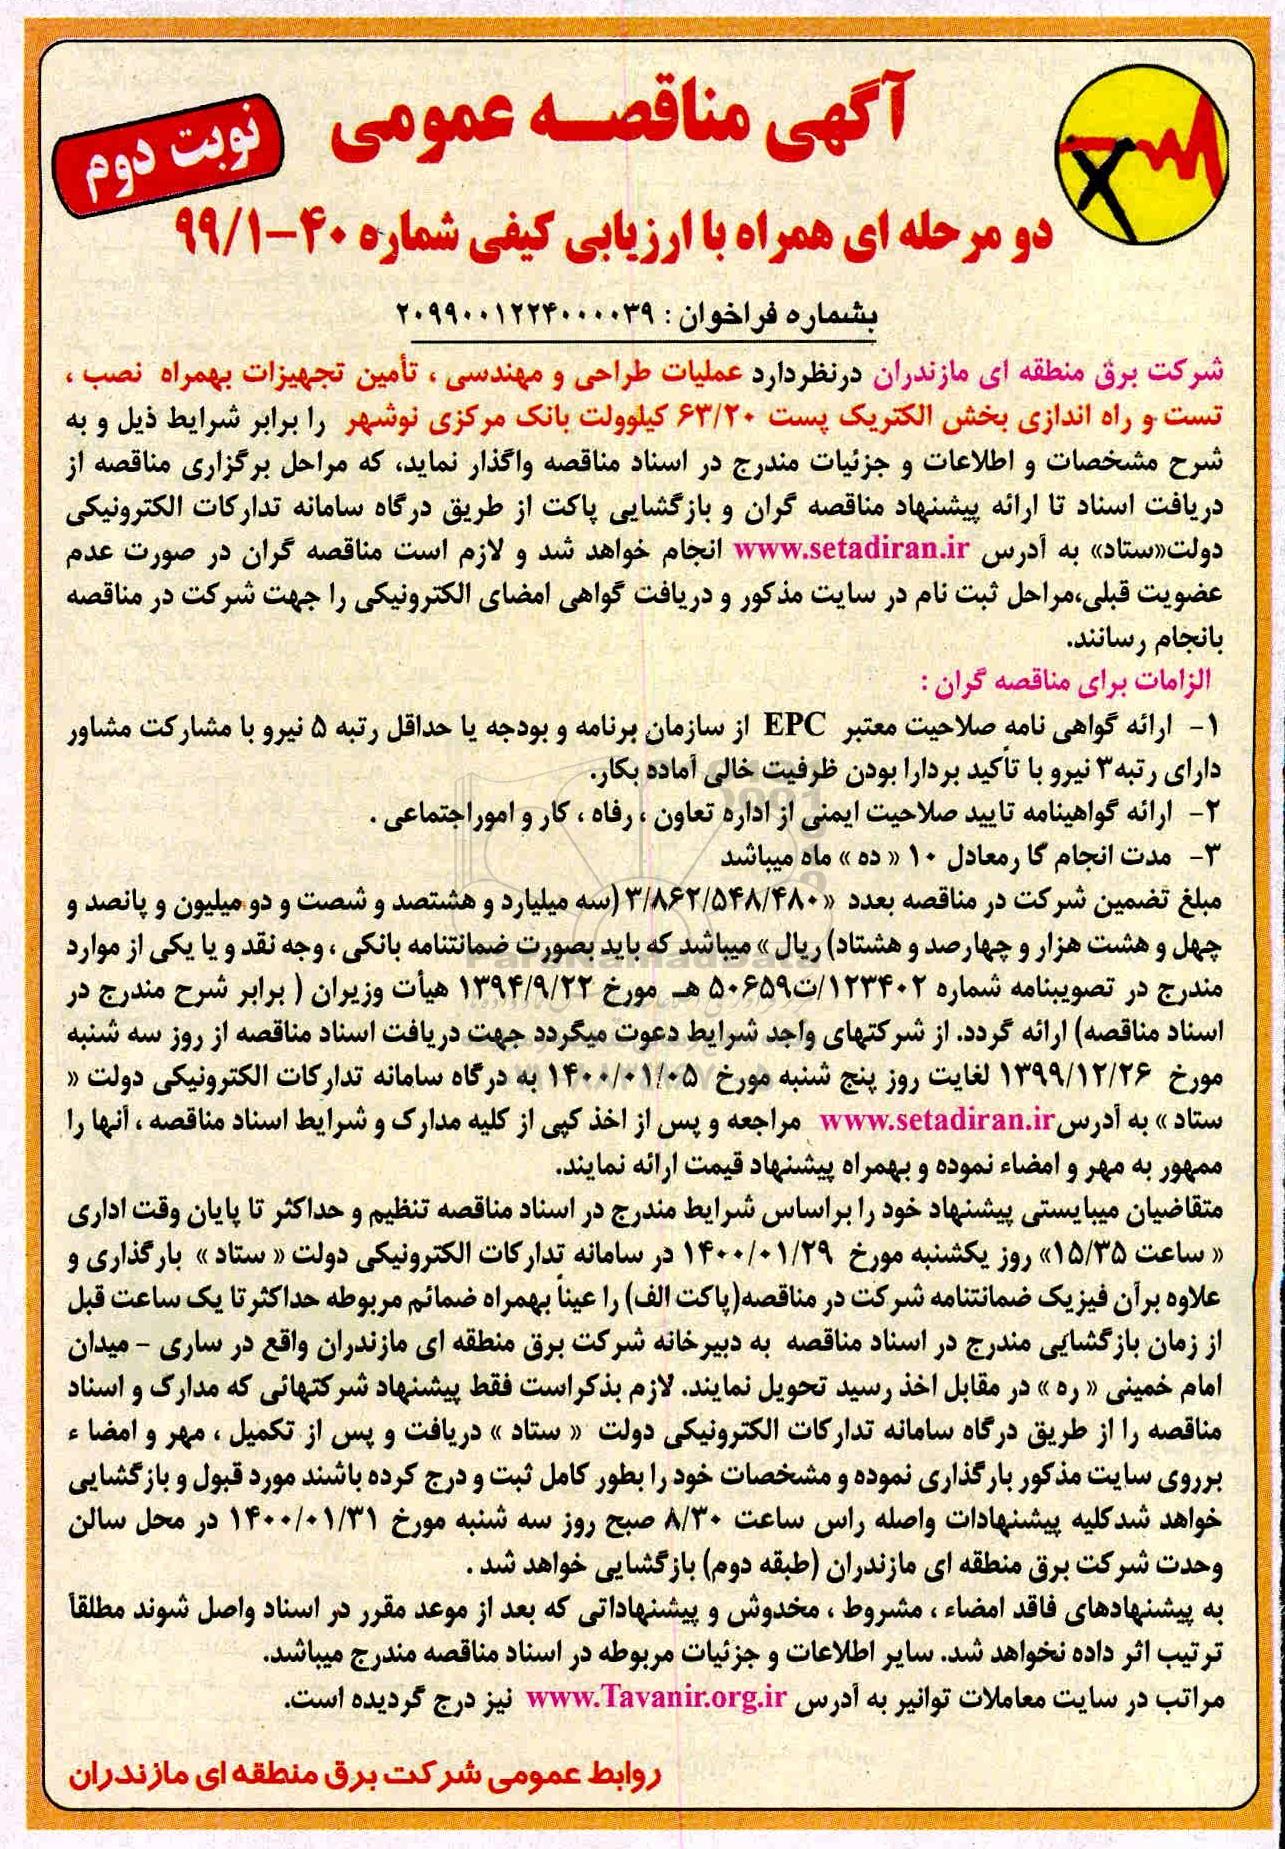 آگهی مناقصه عمومی
نوبت دوم
دو مرحله ای همراه با ارزیابی کیفی شماره ۴۰-۹۹/۱
بشماره فراخوان : ۲۰۹۹۰۰۱۲۲۴۰۰۰۰۳۹
شرکت برق منطقه ای مازندران درنظردارد عملیات طراحی و مهندسی ، تأمین تجهیزات بهمراه نصب ،
تست و راه اندازی بخش الکتریک پست ۶۳/۲۰ کیلوولت بانک مرکزی نوشهر را برابر شرایط ذیل و به
شرح مشخصات و اطلاعات و جزئیات مندرج در اسناد مناقصه واگذار نماید، که مراحل برگزاری مناقصه از
دریافت اسناد تا ارائه پیشنهاد مناقصه گران و بازگشایی پاکت از طریق درگاه سامانه تدارکات الکترونیکی
دولت«ستاد» به آدرس www.setadiran.ir انجام خواهد شد و لازم است مناقصه گران در صورت عدم
عضویت قبلی،مراحل ثبت نام در سایت مذکور و دریافت گواهی امضای الکترونیکی را جهت شرکت در مناقصه
بانجام رسانند.
الزامات برای مناقصه گران :
۱- ارائه گواهی نامه صلاحیت معتبر EPC از سازمان برنامه و بودجه یا حداقل رتبه ۵ نیرو با مشارکت مشاور
دارای رتبه۳ نیرو با تأکید بردارا بودن ظرفیت خالی آماده بکار.
۲- ارائه گواهینامه تایید صلاحیت ایمنی از اداره تعاون ، رفاه ، کار و اموراجتماعی .
۳- مدت انجام کا رمعادل ۱۰ « ده » ماه میباشد
مبلغ تضمین شرکت در مناقصه بعدد «۳/۸۶۲/۵۴۸/۴۸۰ (سه میلیارد و هشتصد و شصت و دو میلیون و پانصد و
چهل و هشت هزار و چهارصد و هشتاد) ریال » میباشد که باید بصورت ضمانتنامه بانکی ، وجه نقد و یا یکی از موارد
مندرج در تصویبنامه شماره ۱۲۳۴۰۲/ت۵۰۶۵۹ هـ مورخ ۱۳۹۴/۹/۲۲ هیأت وزیران ( برابر شرح مندرج در
اسناد مناقصه) ارائه گردد. از شرکتهای واجد شرایط دعوت میگردد جهت دریافت اسناد مناقصه از روز سه شنبه
مورخ ۱۳۹۹/۱۲/۲۶ لغایت روز پنج شنبه مورخ ۱۴۰۰/۰۱/۰۵ به درگاه سامانه تدارکات الکترونیکی دولت «
ستاد » به آدرسwww.setadiran.ir مراجعه و پس از اخذ کپی از کلیه مدارک و شرایط اسناد مناقصه ، آنها را
ممهور به مهر و امضاء نموده و بهمراه پیشنهاد قیمت ارائه نمایند.
متقاضیان میبایستی پیشنهاد خود را براساس شرایط مندرج در اسناد مناقصه تنظیم و حداکثر تا پایان وقت اداری
« ساعت ۱۵/۳۵» روز یکشنبه مورخ ۱۴۰۰/۰۱/۲۹ در سامانه تدارکات الکترونیکی دولت « ستاد » بارگذاری و
علاوه برآن فیزیک ضمانتنامه شرکت در مناقصه(پاکت الف) را عیناً بهمراه ضمائم مربوطه حداکثرتا یک ساعت قبل
از زمان بازگشایی مندرج در اسناد مناقصه به دبیرخانه شرکت برق منطقه ای مازندران واقع در ساری - میدان
امام خمینی « ره » در مقابل اخذ رسید تحویل نمایند. لازم بذکراست فقط پیشنهاد شرکتهائی که مدارک و اسناد
مناقصه را از طریق درگاه سامانه تدارکات الکترونیکی دولت « ستاد » دریافت و پس از تکمیل ، مهر و امضا ء
برروی سایت مذکور بارگذاری نموده و مشخصات خود را بطور کامل ثبت و درج کرده باشند مورد قبول و بازگشایی
خواهد شدکلیه پیشنهادات واصله راس ساعت ۸/۳۰ صبح روز سه شنبه مورخ ۱۴۰۰/۰۱/۳۱ در محل سالن
وحدت شرکت برق منطقه ای مازندران (طبقه دوم) بازگشایی خواهد شد .
به پیشنهادهای فاقد امضاء ، مشروط ، مخدوش و پیشنهاداتی که بعد از موعد مقرر در اسناد واصل شوند مطلقاً
ترتیب اثر داده نخواهد شد. سایر اطلاعات و جزئیات مربوطه در اسناد مناقصه مندرج میباشد.
مراتب در سایت معاملات توانیر به آدرس www.Tavanir.org.ir نیز درج گردیده است.
روابط عمومی شرکت برق منطقه ای مازندران